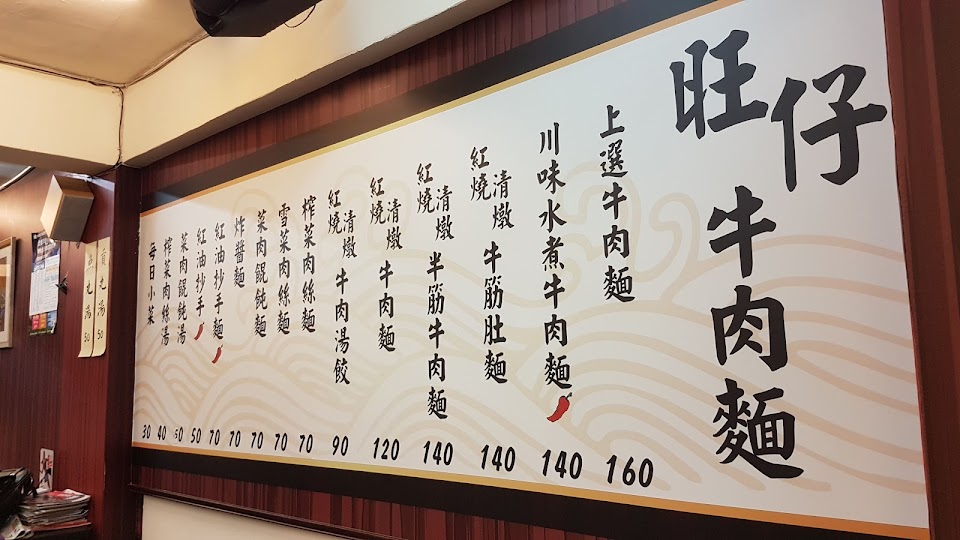 旺仔牛肉麵
上選牛肉麵 160
川味水煮牛肉麵 140
紅燒 清燉 牛筋肚麵 140
紅燒 清燉 半筋牛肉麵 140
紅燒 清燉 牛肉麵 120
紅燒 清燉 牛肉湯餃 90
榨菜肉絲麵 70
雪菜肉絲麵 70
菜肉餛飩麵 70
炸醬麵 70
紅油抄手麵 70
紅油抄手 50
菜肉餛飩湯 50
榨菜肉絲湯 40
每日小菜 30
貢丸湯 50
丸湯 50